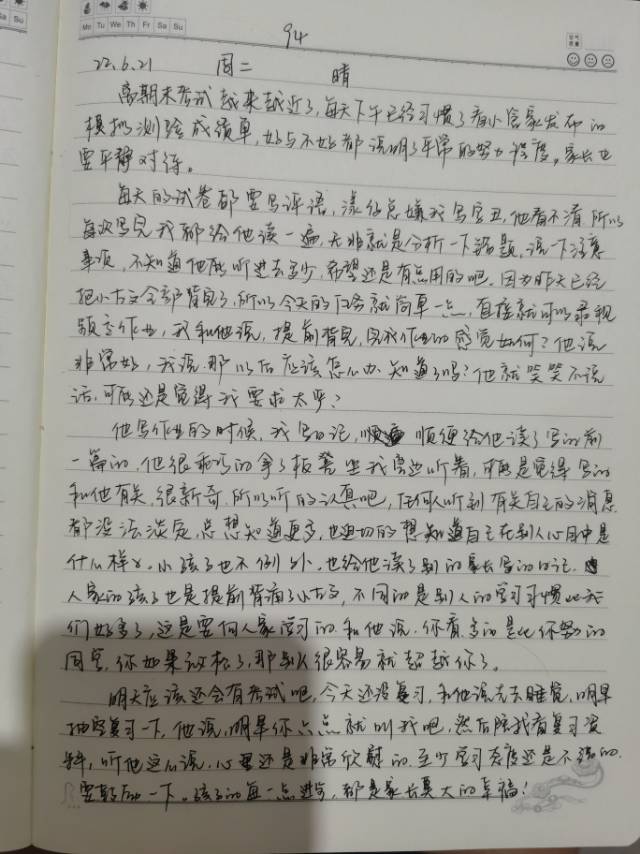 Mo Tu We Th Fr Sa Su
94
22.6.21 周二 晴
离期末考试越来越近了,每天下午已经习惯了看小管家发布的
模拟测验成绩单,好与不好都说明了平常的努力程度。家长也
要平静对待。
每天的试卷都要写评语,总嫌我写字丑,他看不清,所以
每次写完我都给他读一遍,无非就是分析一下错题,说一下注意
事项,不知道他能听进去多少,希望还是有点用的吧。因为昨天已经
把小古文全部背完了,所以今天的任务就简单一点,直接就可以录视
频交作业,我和他说,提前背完,完成作业的感觉如何?他说
非常好,我说.那以后应该怎么办.知道了吗?他就笑笑不说
话.可能还是觉得我要求太严?
他写作业的时候,我写日记,顺便给他读了写的前
一篇的,他很乖巧的拿了板凳坐我旁边听着,可能是觉得写的
和他有关,很新奇.所以听的认真吧,任何人听到有关自己的消息
都没法淡定,总想知道更多,也迫切的想知道自己在别人心目中是
什么样子.小孩子也不例外.也给他读了别的家长写的日记.
人家的孩子也是提前背诵了小古文,不同的是别人的学习习惯比我
们好多了,这是要向人家学习的.和他说.你看,多的是比你努力的
同学,你如果放松了,那别人很容易就超越你了。
明天应该还会有考试吧,今天还没复习,和他说先去睡觉,明早
抽空复习一下,他说,明早你六点就叫我吧,然后陪我看复习资
料,听他这么说.心里还是非常欣慰的.至少学习态度还是不错的.
要鼓励一下。孩子的每一点进步,都是家长莫大的幸福!